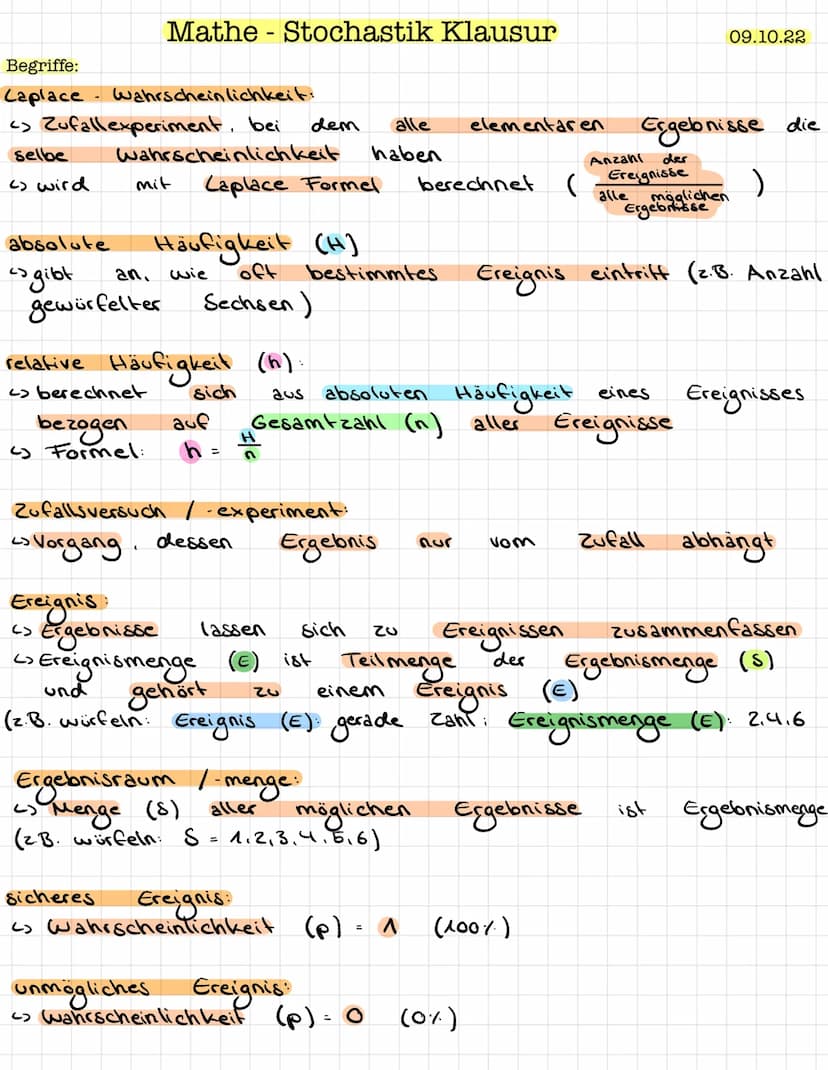 Mathe - Stochastik Klausur
09.10.22
Begriffe:
Laplace - Wahrscheinlichkeit:
↳ Zufallexperiment, bei dem alle elementaren Ergebnisse die
selbe Wahrscheinlichkeit haben
↳ wird mit Laplace Formel berechnet ( Anzahl der
Ereignisse
alle möglichen
Ergebnisse )
absolute Häufigkeit (H)
↳ gibt an, wie oft bestimmtes Ereignis eintritt (z.B. Anzahl
gewürfelter Sechsen)
relative Häufigkeit (h):
↳ berechnet sich aus absoluten Häufigkeit eines Ereignisses
bezogen auf Gesamtzahl (n) aller Ereignisse
↳ Formel: h = H/n
Zufallsversuch / -experiment:
↳ Vorgang, dessen Ergebnis nur vom Zufall abhängt
Ereignis:
↳ Ergebnisse lassen sich zu Ereignissen zusammenfassen
↳ Ereignismenge (E) ist Teilmenge der Ergebnismenge (S)
und gehört zu einem Ereignis (E)
(z.B. würfeln: Ereignis (E): gerade Zahl; Ereignismenge (E): 2,4,6
Ergebnisraum / -menge:
↳ Menge (S) aller möglichen Ergebnisse ist Ergebnismenge
(z.B. würfeln: S = 1,2,3,4,5,6)
sicheres Ereignis:
↳ Wahrscheinlichkeit (p) = 1 (100%)
unmögliches Ereignis:
↳ Wahrscheinlichkeit (p) = 0 (0%)